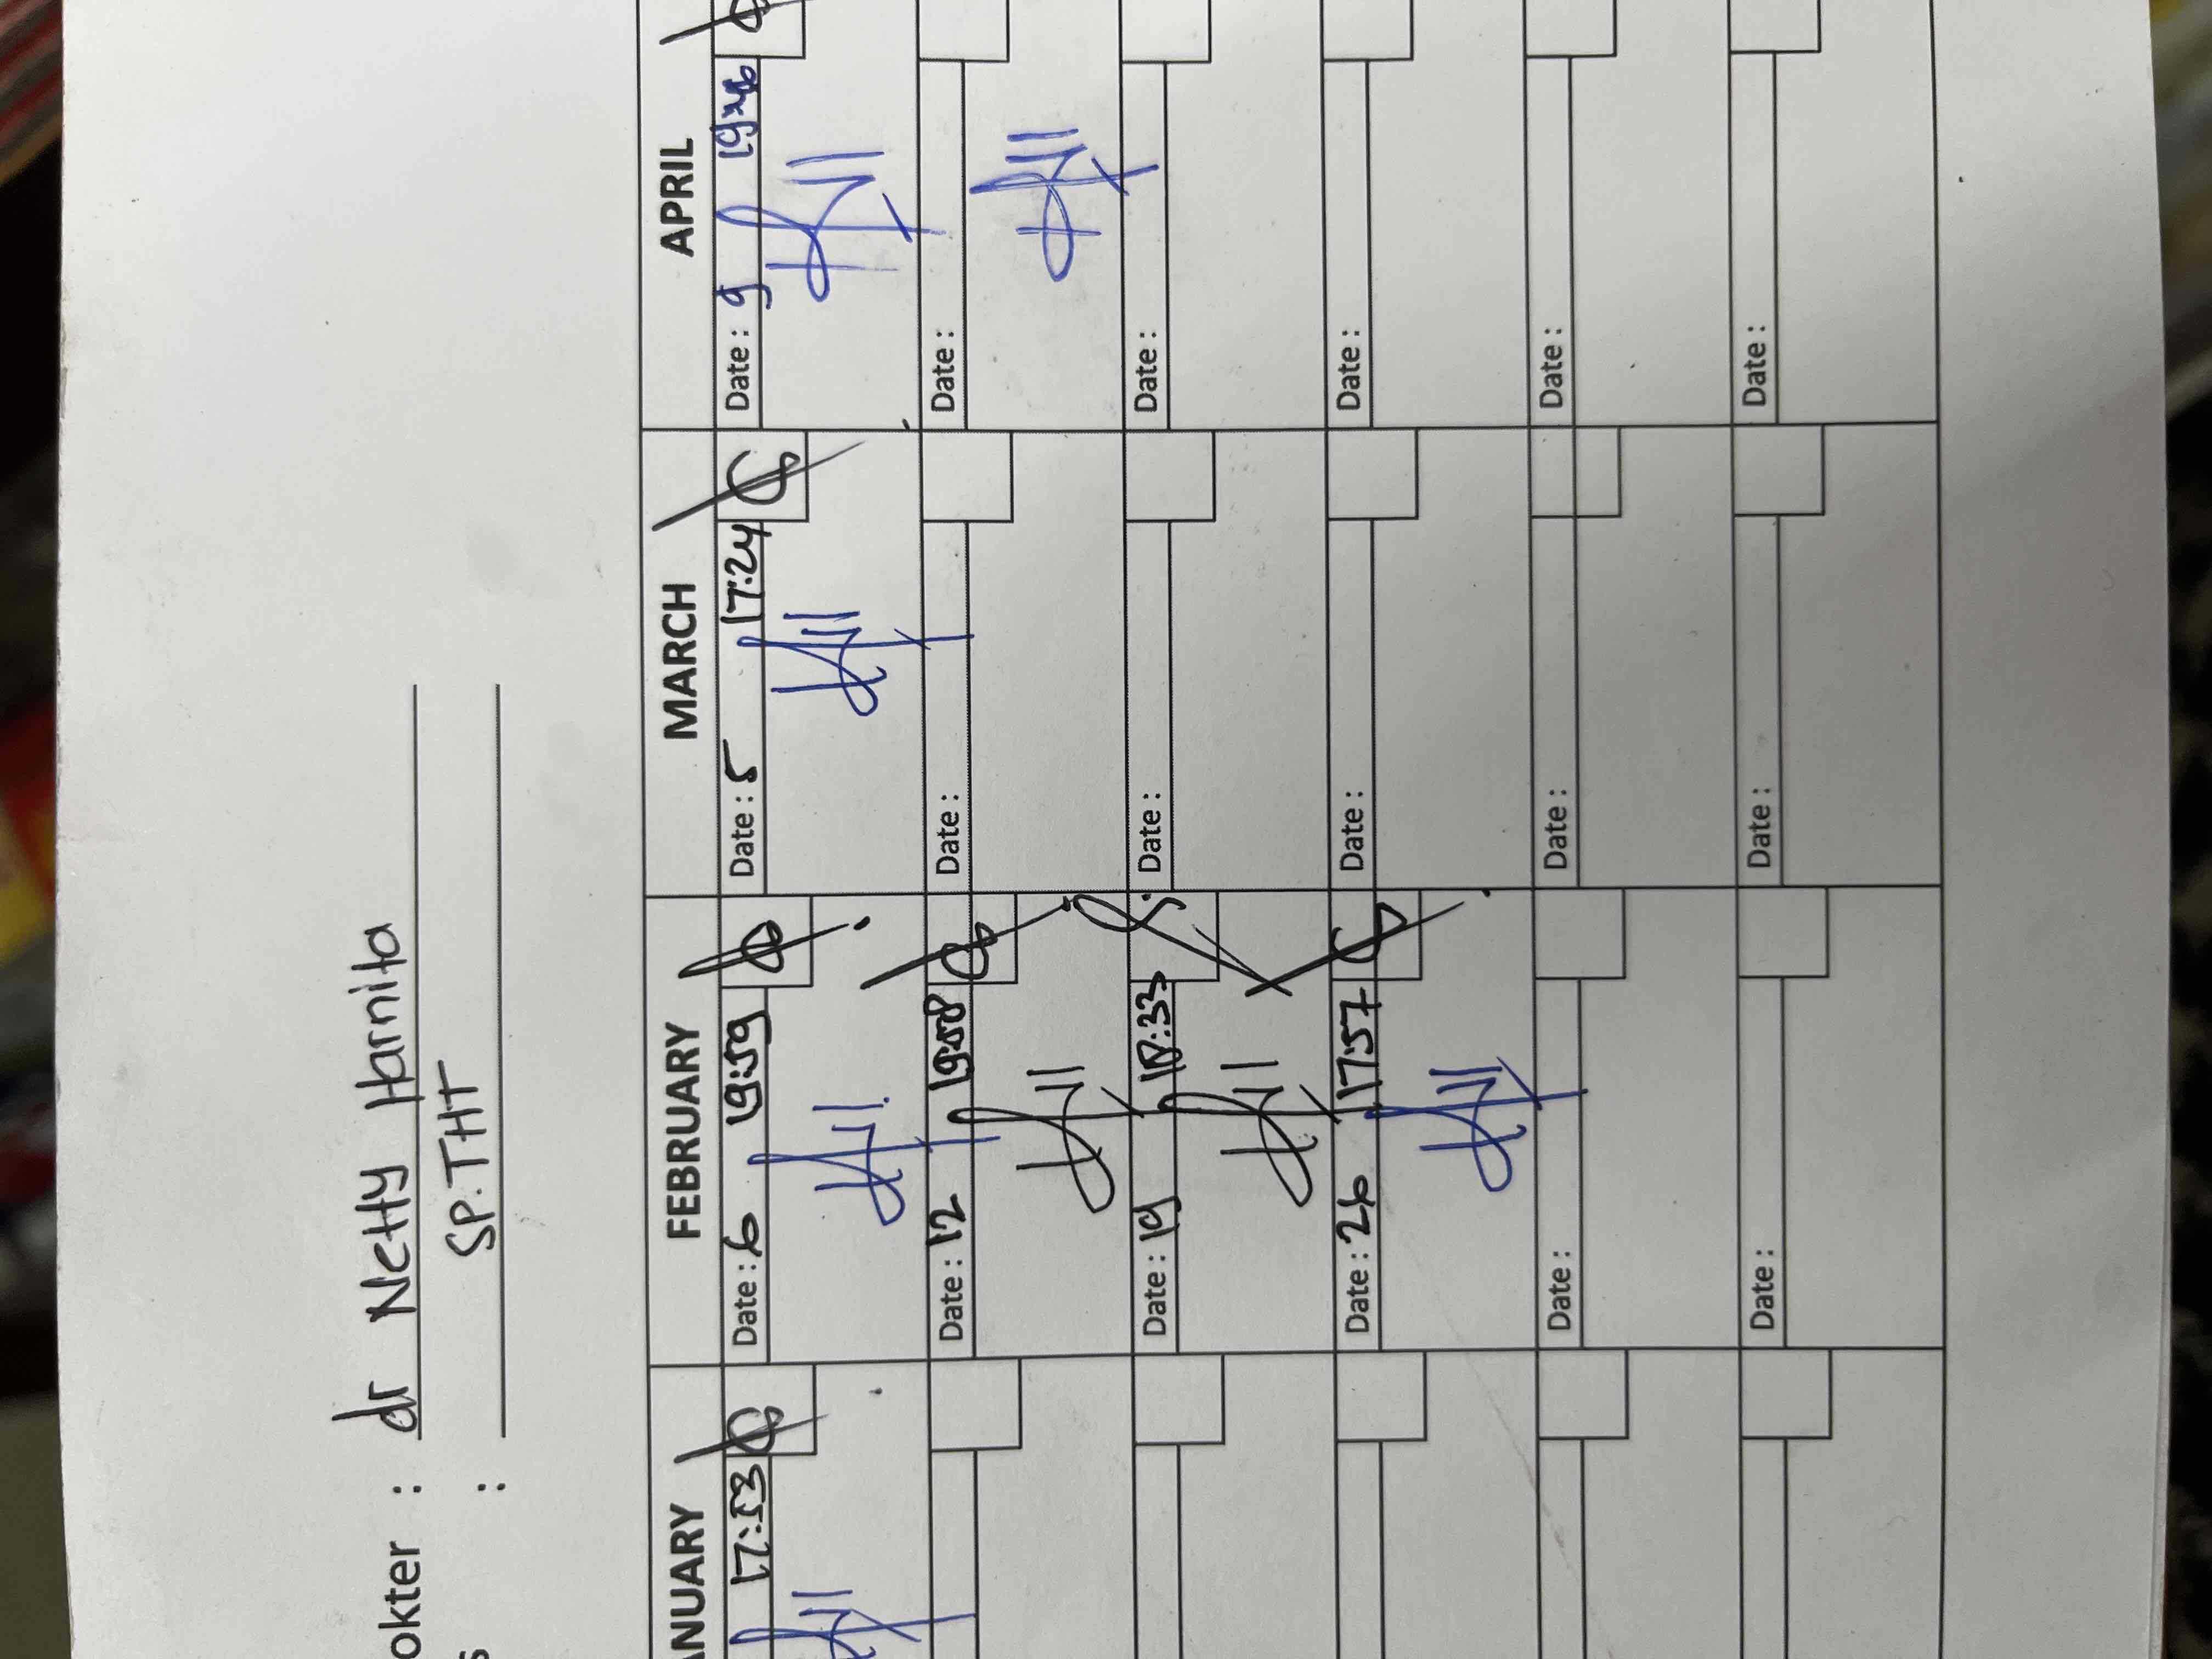 okter : dr Netty Harnita
s : SP.THT
ANUARY FEBRUARY MARCH APRIL
17:53 Date : 6 19:59 Date : 5 17:24 Date : 9
Date : 12 19:08 Date : Date :
Date : 19 18:33 Date : Date :
Date : 26 17:57 Date : Date :
Date : Date : Date :
Date : Date : Date :